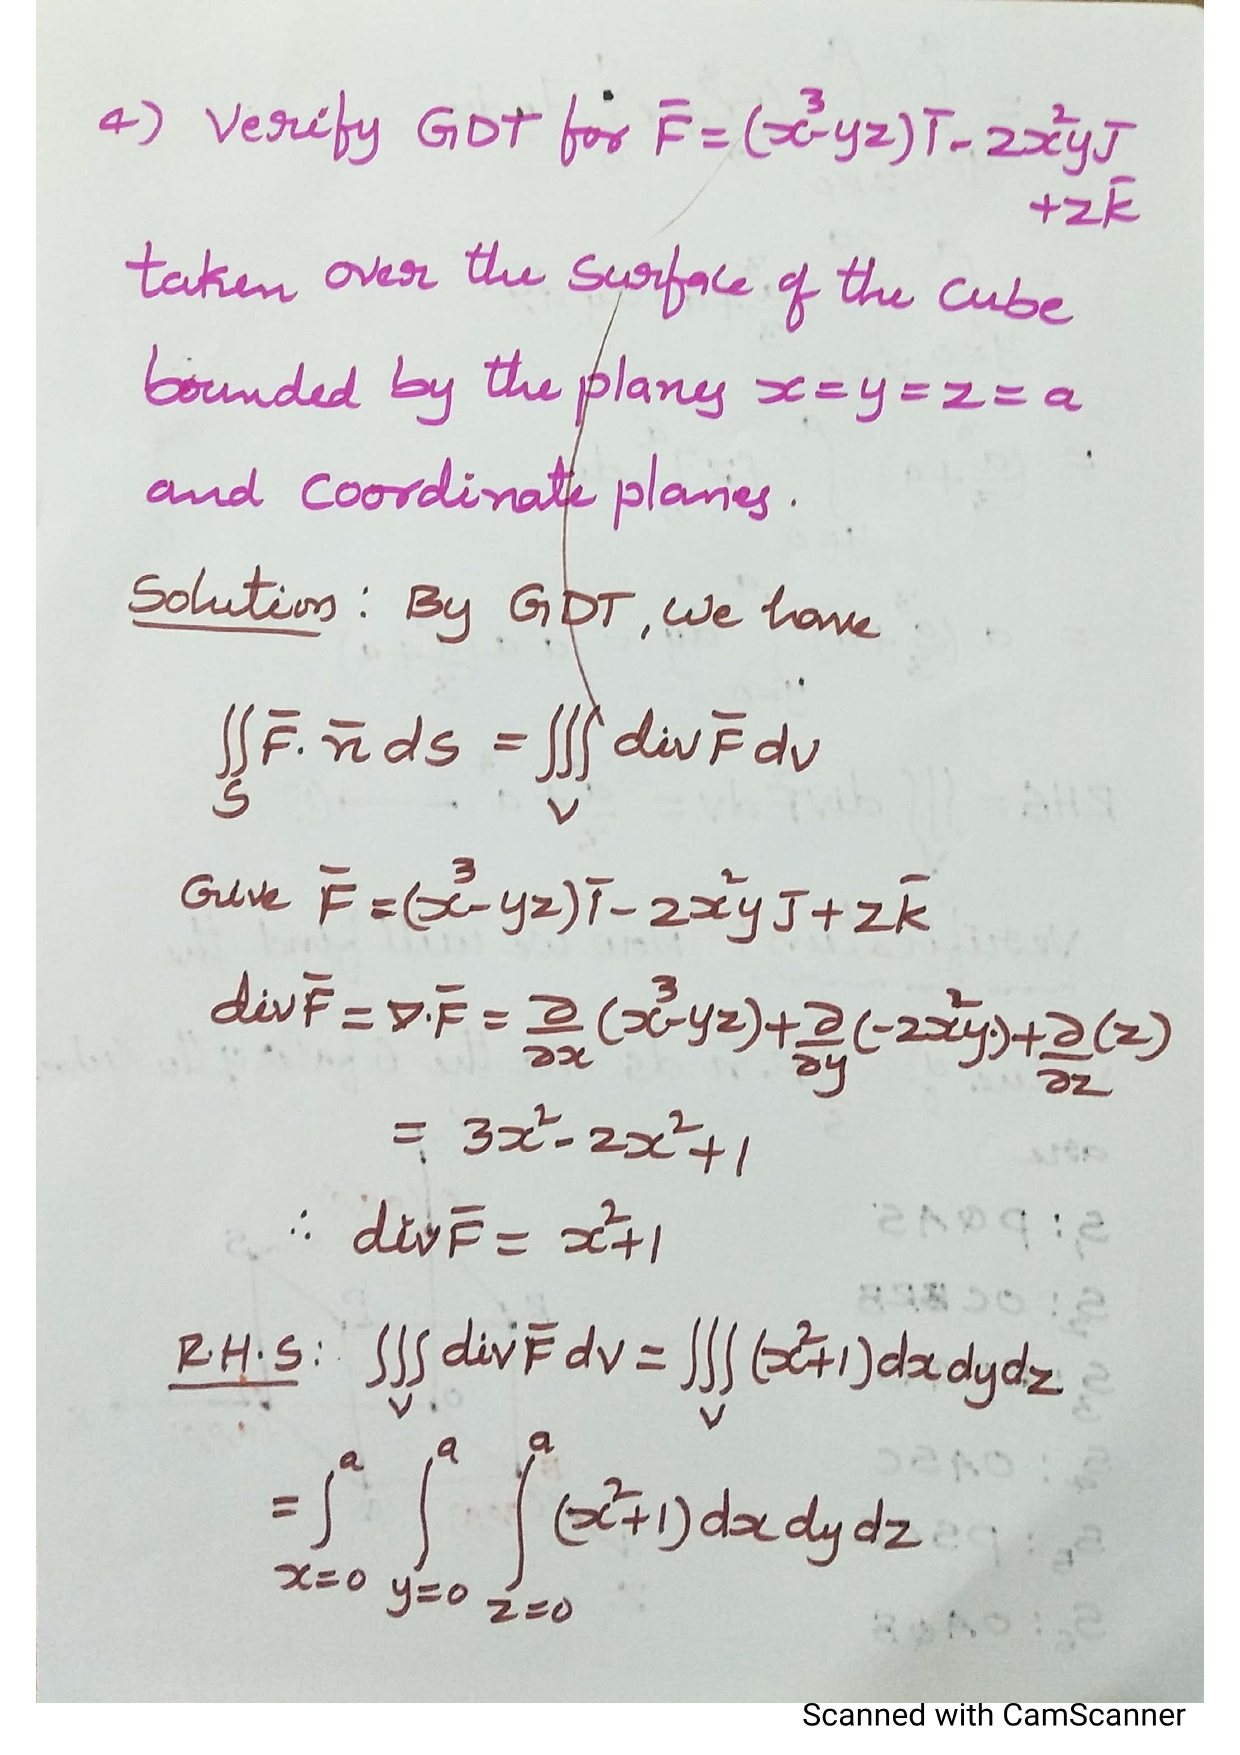 4) Verify GDT for F̅ = (x³-yz)i̅ - 2x²yj̅
+zk̅
taken over the surface of the cube
bounded by the planes x=y=z=a
and coordinate planes.
Solution: By GDT, we have
∬_S F̅. n̅ ds = ∭_V div F̅ dv
Give F̅ = (x³-yz)i̅ - 2x²yj̅ + zk̅
div F̅ = ∇.F̅ = ∂/∂x (x³-yz) + ∂/∂y (-2x²y) + ∂/∂z (z)
= 3x² - 2x² + 1
∴ div F̅ = x²+1
R.H.S: ∭_V div F̅ dv = ∭_V (x²+1) dx dy dz
= ∫_{x=0}^a ∫_{y=0}^a ∫_{z=0}^a (x²+1) dx dy dz
Scanned with CamScanner